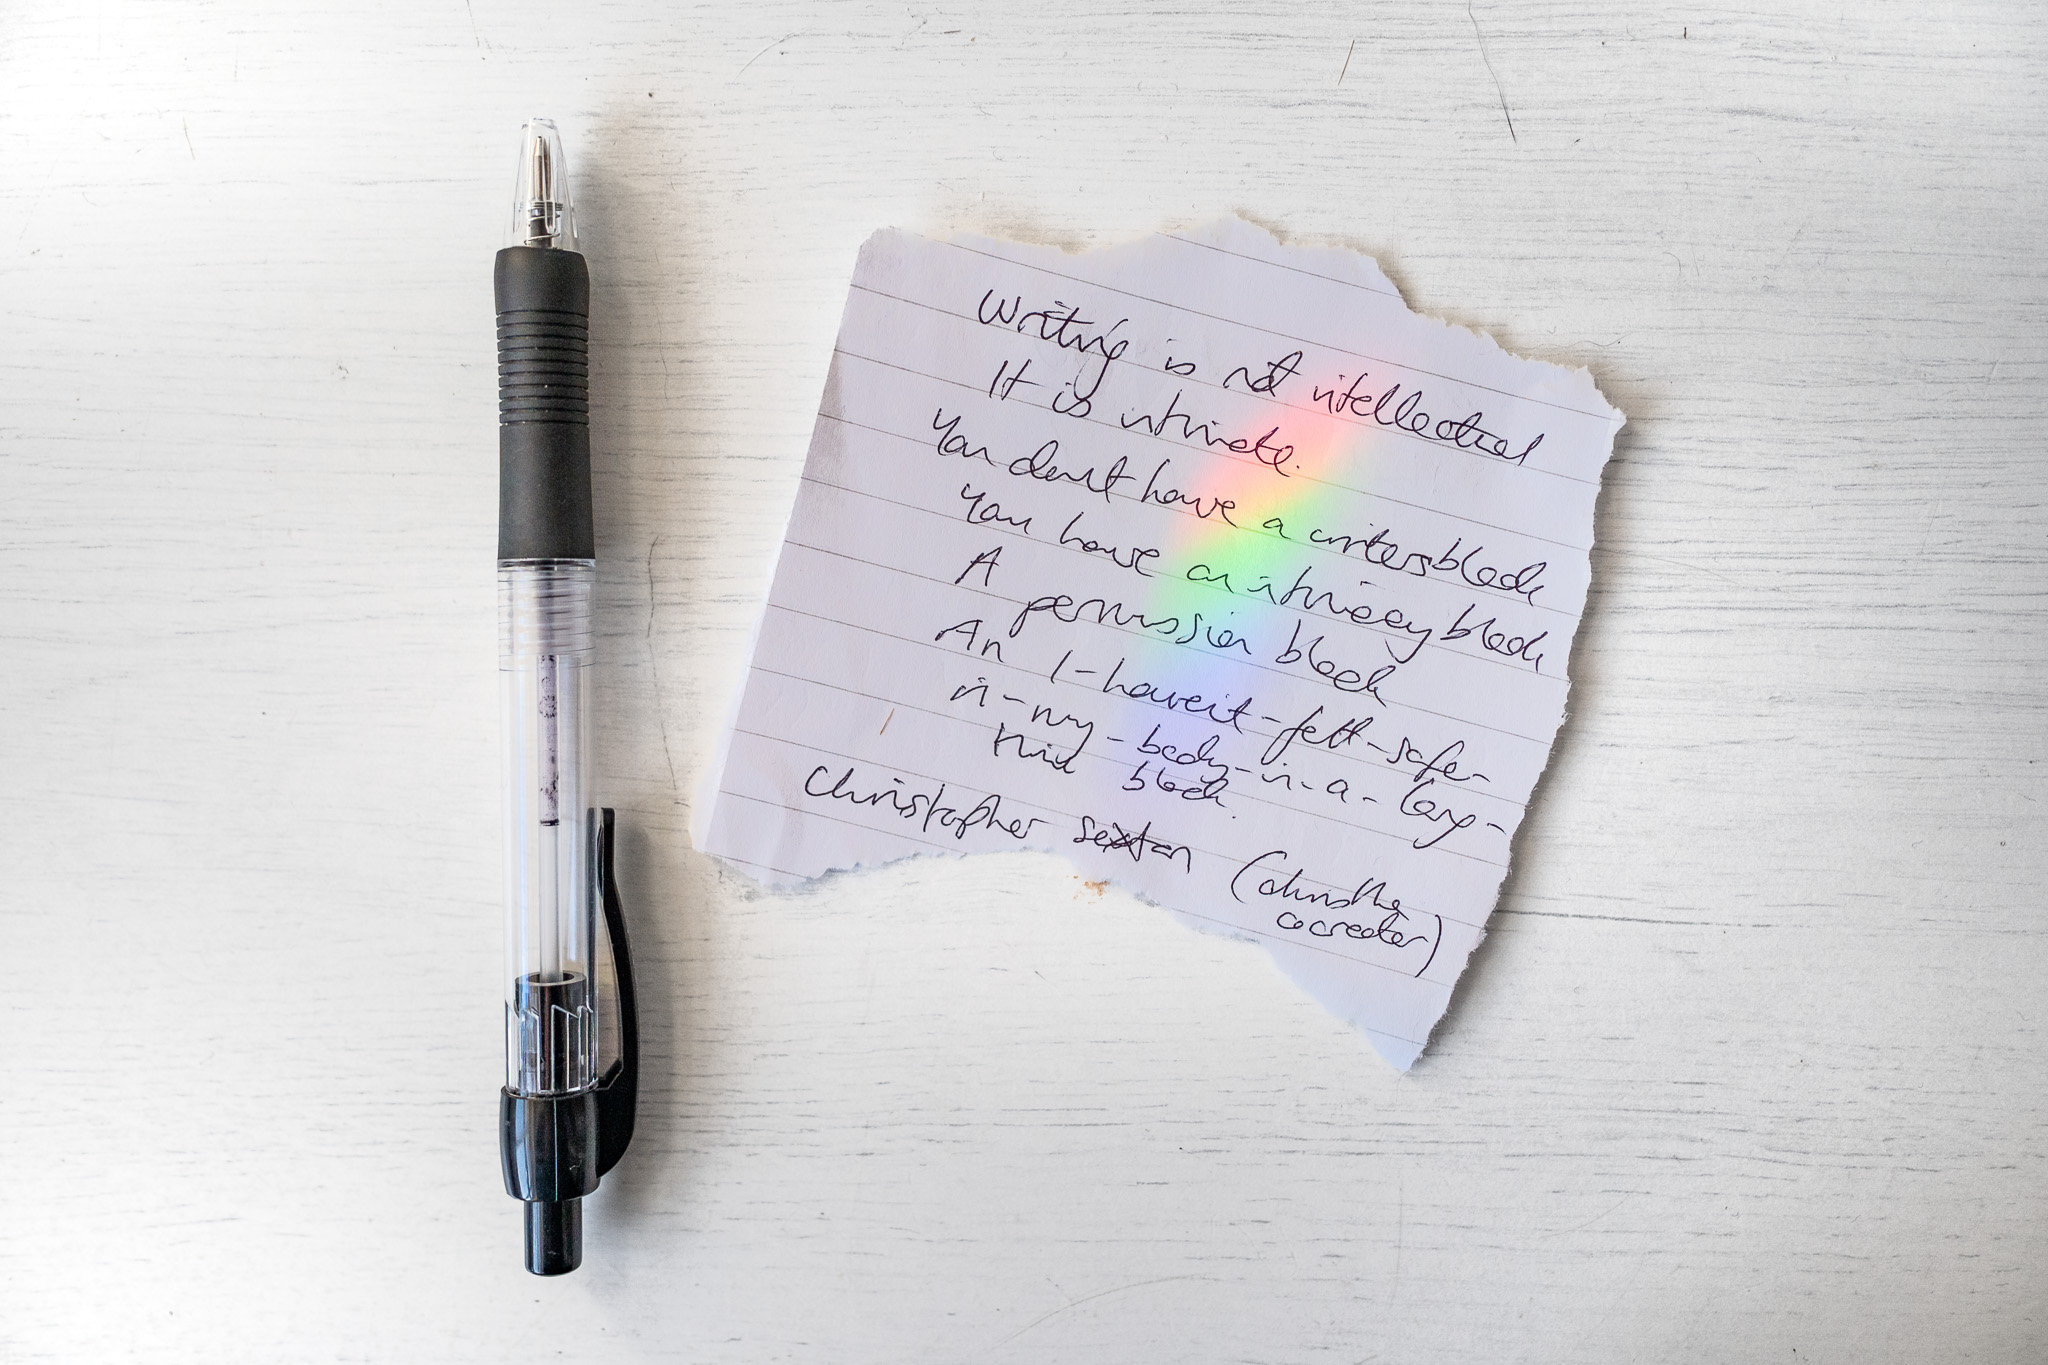 Writing is not intellectual
It is intimate.
You don't have a writersblock
You have an intimacy block
A permission block
An I-havent-felt-safe-
in-my-body-in-a-long-
time block.
Christopher sexton (christhe
cocreator)